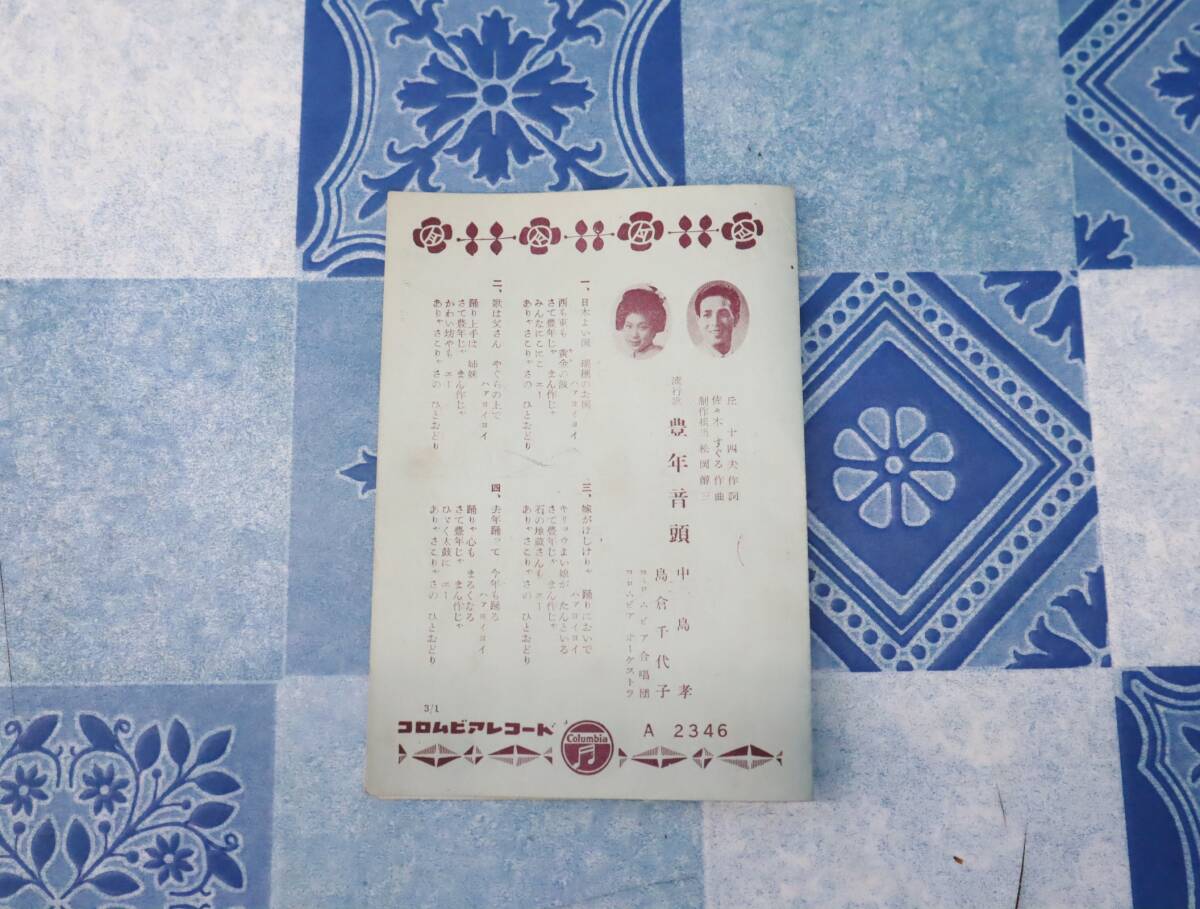 丘 十四夫 作詞
佐々木 すぐる 作曲
制作担当 松岡 三
流行歌 豊年音頭
中島 孝
島倉千代子
コロムビア合唱団
コロムビア オーケストラ
一、日本よい国 瑞穂のお国
ハァヨイヨイ
西も東も 黄金の波
さて豊年じゃ まん作じゃ
みんなにこにこ エー
ありゃさこりゃさの ひとおどり
二、歌は父さん やぐらの上で
ハァヨイヨイ
踊り上手は 姉妹
さて豊年じゃ まん作じゃ
かわい坊やも エー
ありゃさこりゃさの ひとおどり
三、嫁がほしけりゃ 踊りにおいで
ハァヨイヨイ
キリョウよい娘が たんといる
さて豊年じゃ まん作じゃ
石の地蔵さんも エー
ありゃさこりゃさの ひとおどり
四、去年踊って 今年も踊る
ハァヨイヨイ
踊りゃ心も まるくなる
さて豊年じゃ まん作じゃ
ひゞく太鼓に エー
ありゃさこりゃさの ひとおどり
3/1
コロムビアレコード
Columbia
A 2346